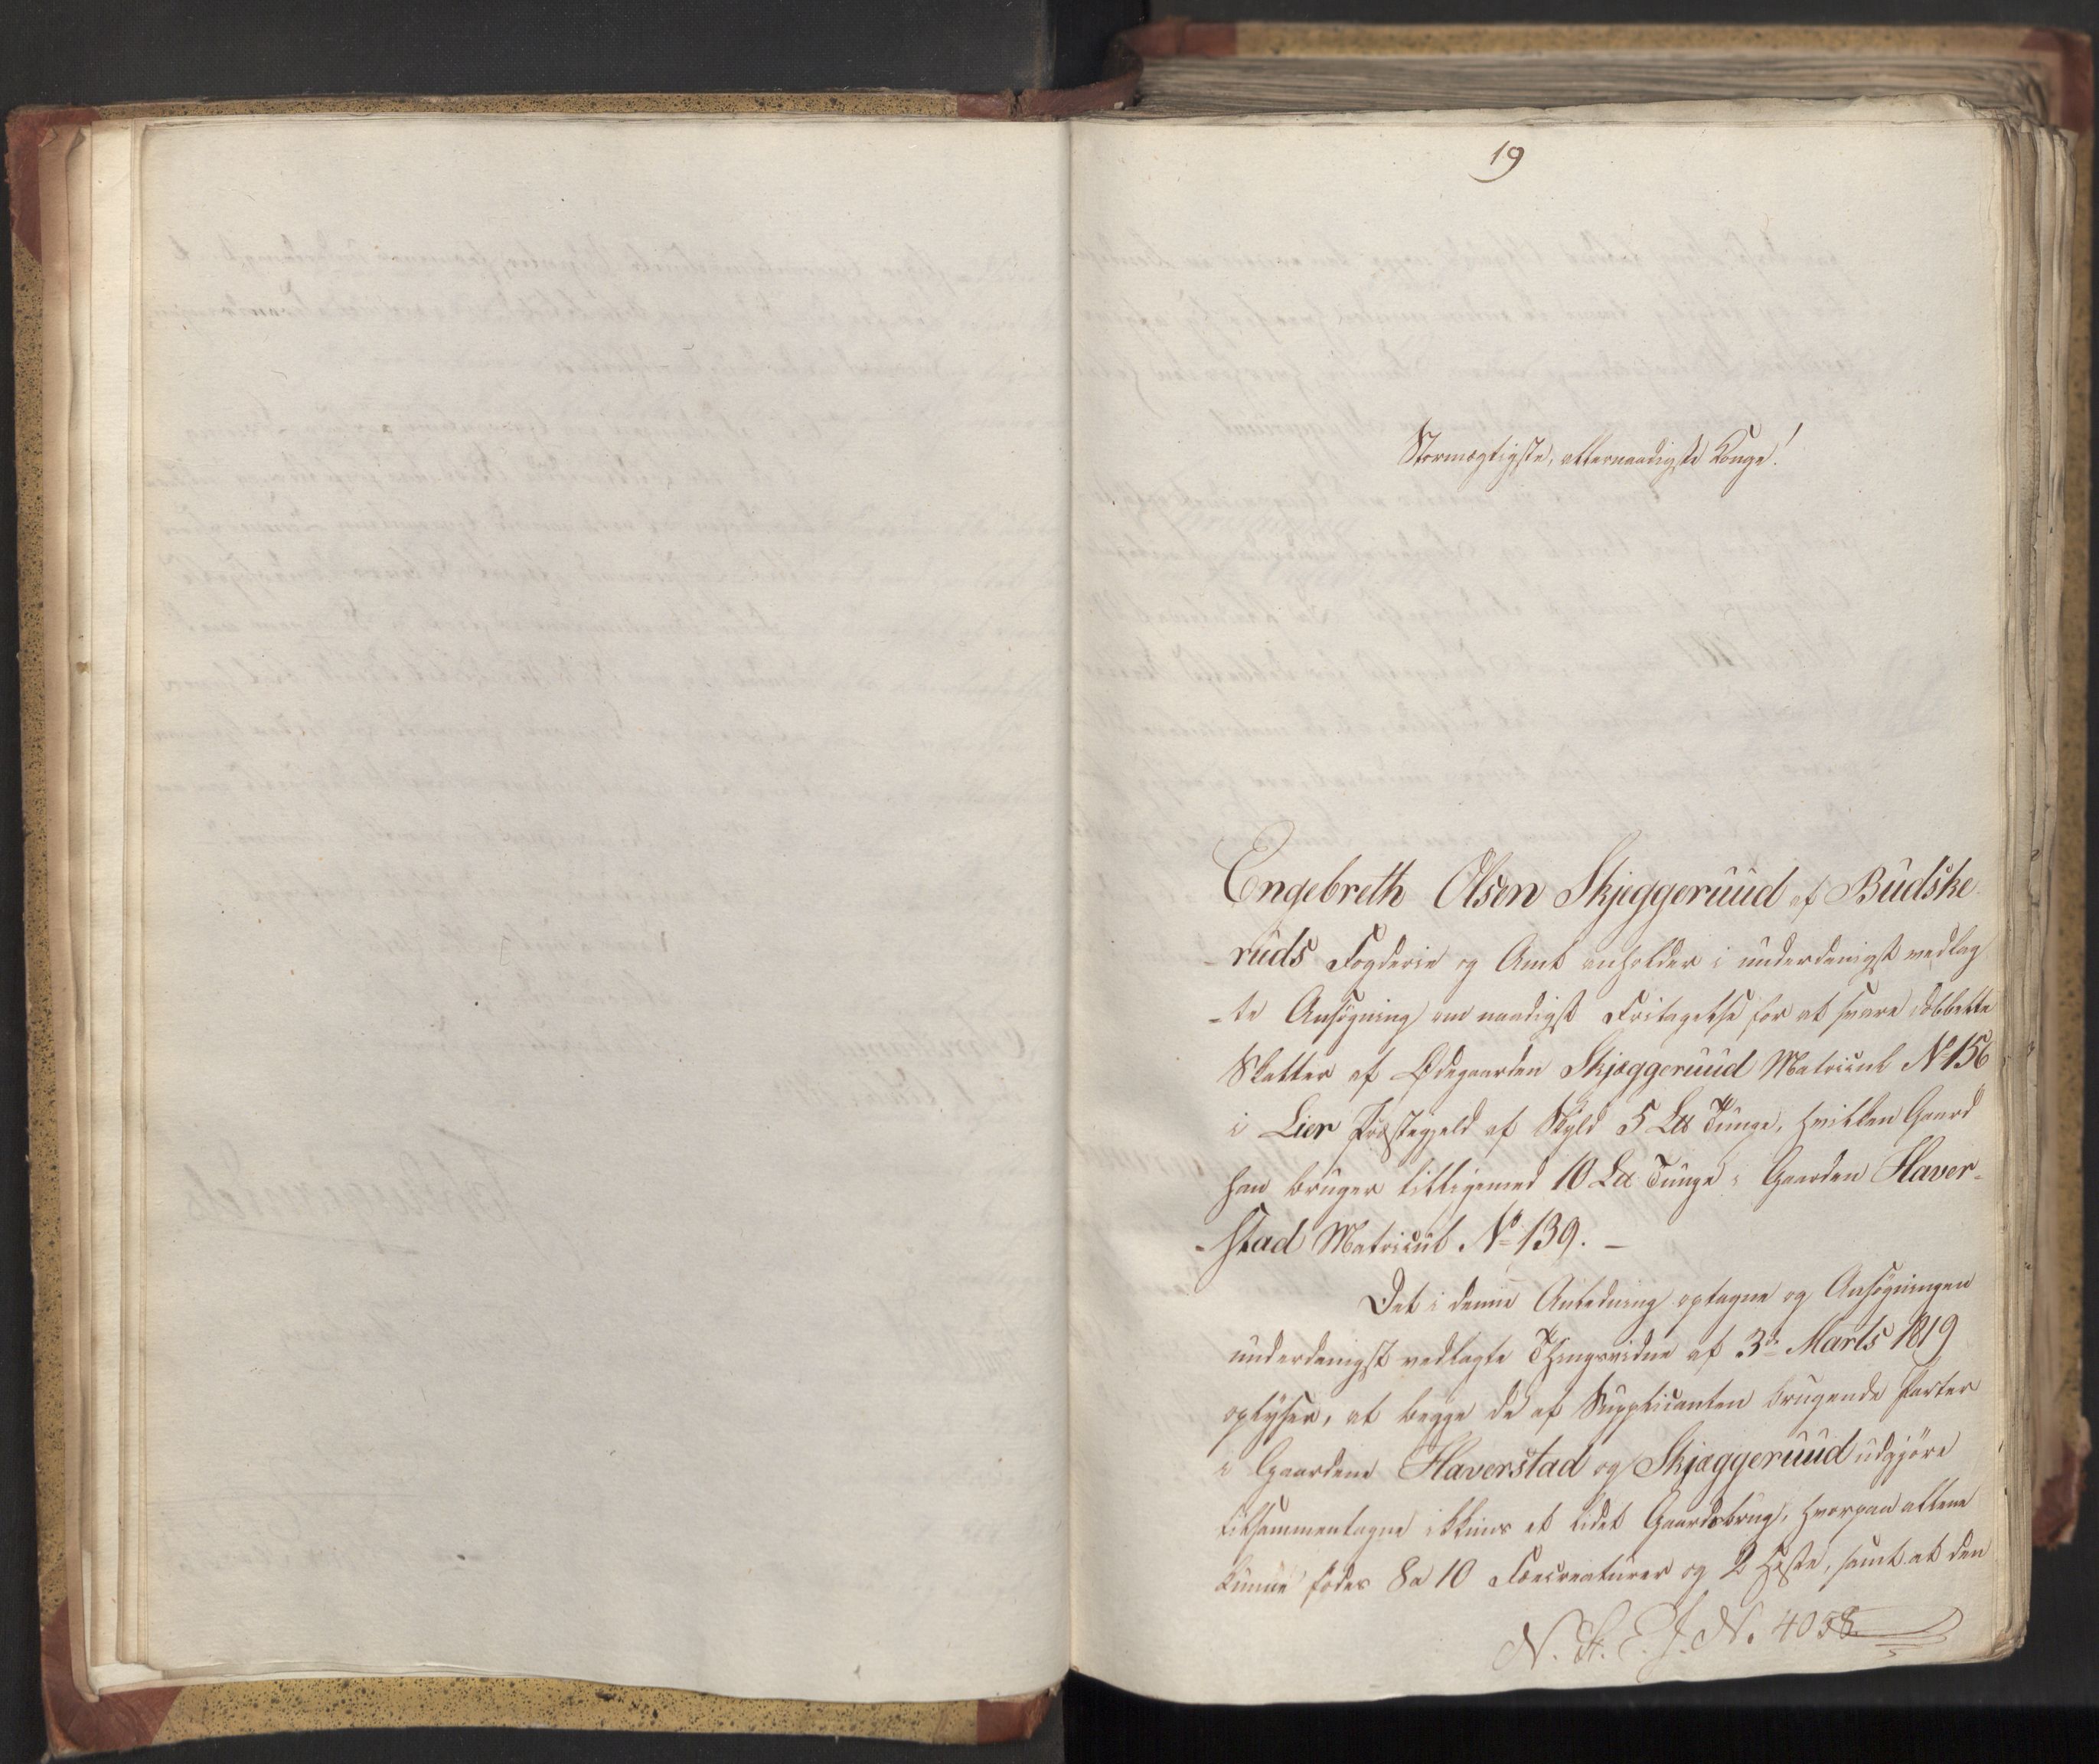 19
Stormægtigste, allernaadigste Konge!
Engebreth Olsen Skjeggeruud af Budske
-ruds Fogderie og Amt anholder i underdanigst vedlag
-te Ansøgning om naadigst Fritagelse for at svare dobbelte
Skatter af Ødegaarden Skjæggeruud Matricul No 156
i Lier Præstegjeld af Skyld 5 L℔ Tunge, hvilken Gaard
han bruger tilligemed 10 L℔ Tunge i Gaarden Haver-
-stad Matricul No 139. –
Det i denne Anledning optagne og Ansøgningen
underdanigst vedlagte Thingsvidne af 3de Marts 1819
oplyser, at begge de af Supplicanten brugende Parter
i Gaardene Haverstad og Skjæggeruud udgjøre
tilsammentagne ikkuns et lidet Gaardsbrug, hvorpaa allene
kunne fødes 8 a 10 Fæecreaturer og 2 Heste, samt at den
N. St. E. J. N. 4058